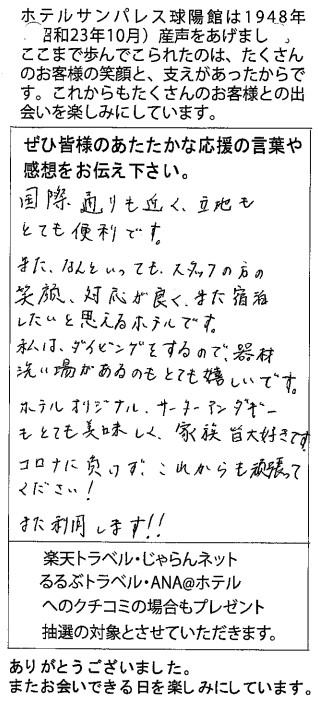 ホテルサンパレス球陽館は1948年
昭和23年10月）産声をあげまし
ここまで歩んでこられたのは、たくさん
のお客様の笑顔と、支えがあったからで
す。これからもたくさんのお客様との出
会いを楽しみにしています。
ぜひ皆様のあたたかな応援の言葉や
感想をお伝え下さい。
国際通りも近く、立地も
とても便利です。
また、なんといっても、スタッフの方の
笑顔、対応が良く、また宿泊
したいと思えるホテルです。
私は、ダイビングをするので、器材
洗い場があるのもとても嬉しいです。
ホテルオリジナル、サーターアンダギー
もとても美味しく、家族皆大好きです
コロナに負けず、これからも頑張って
ください！
また利用します!!
楽天トラベル・じゃらんネット
るるぶトラベル・ANA@ホテル
へのクチコミの場合もプレゼント
抽選の対象とさせていただきます。
ありがとうございました。
またお会いできる日を楽しみにしています。